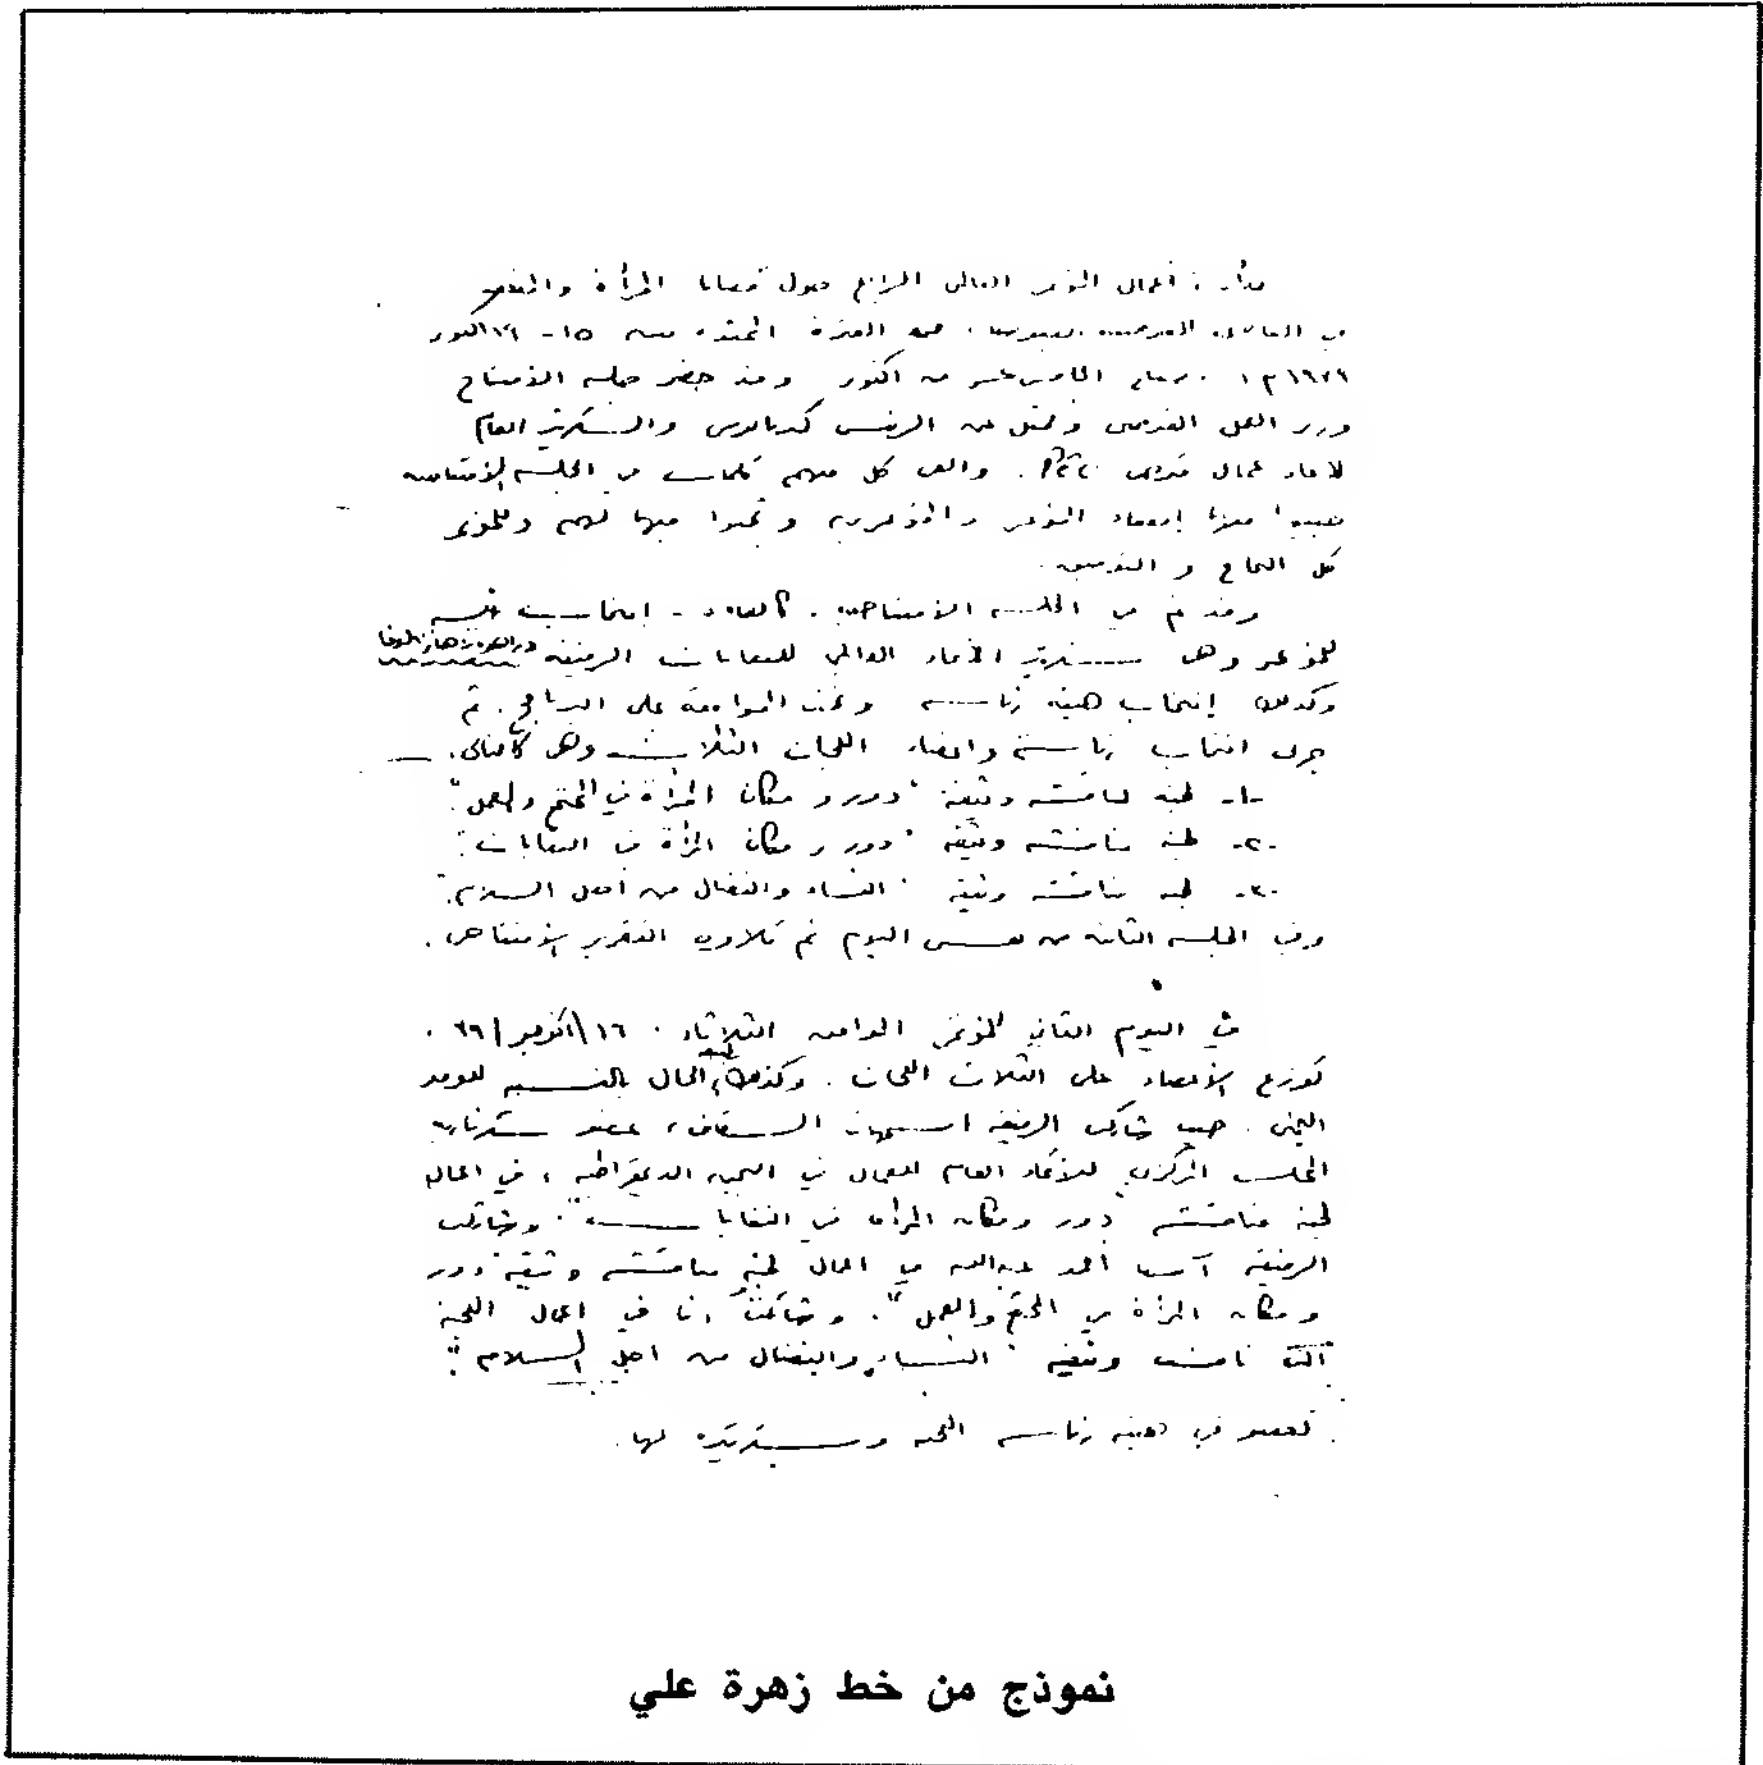 بدأت أعمال المؤتمر العالمي الرابع حول قضايا المرأة
في العاصمة القبرصية نيقوسيا، في الفترة الممتدة من ١٥ - اكتوبر
١٩٧٩م، الخامس عشر من اكتوبر وقد حضر جلسة الافتتاح
وزير العمل القبرصي وممثل عن الرئيس كبريانوس والسكرتير العام
لاتحاد عمال قبرص. والقى كل منهم كلمات في الجلسة الافتتاحية
إنعقاد المؤتمر وتمنوا فيها لهم وللمؤتمر
كل النجاح و التوفيق.
وقد تم في الجلسة الافتتاحية - كالعادة - انتخاب
للمؤتمر وهي سكرتير الاتحاد العالمي للنقابات الرفيقة
وكذلك إنتخاب هيئة رئاسة وتمت الموافقة على البرنامج. ثم
جرى انتخاب رئاسة واعضاء اللجان الثلاث وهي كالتالي.
-١- لجنة لمناقشة وثيقة "دور و مكان المرأة في المجتمع والعمل".
-٢- لجنة مناقشة وثيقة "دور و مكان المرأة في النقابات".
-٣- لجنة مناقشة وثيقة "النساء والنضال من أجل السلام".
وفي الجلسة الثانية من نفس اليوم تم تلاوة التقرير الافتتاحي.
في اليوم الثاني للمؤتمر الموافق الثلاثاء ١٦/اكتوبر/٧٩.
توزع الأعضاء على الثلاث اللجان. وكذلك الحال بالنسبة للوفد
اليمني. حيث شاركت الرفيقة اسمهان السقاف، عضو سكرتارية
المجلس المركزي للاتحاد العام للعمال في اليمن الديمقراطية، في اعمال
لجنة مناقشة "دور ومكان المرأة في النقابات". وشاركت
الرفيقة آسيا أحمد عبدالله في اعمال لجنة مناقشة وثيقة "دور
ومكان المرأة في المجتمع والعمل". وشاركت أنا في اعمال اللجنة
التي ناقشت وثيقة "النساء والنضال من اجل السلام".
كعضو في هيئة رئاسة اللجنة وسكرتيرة لها.
نموذج من خط زهرة علي